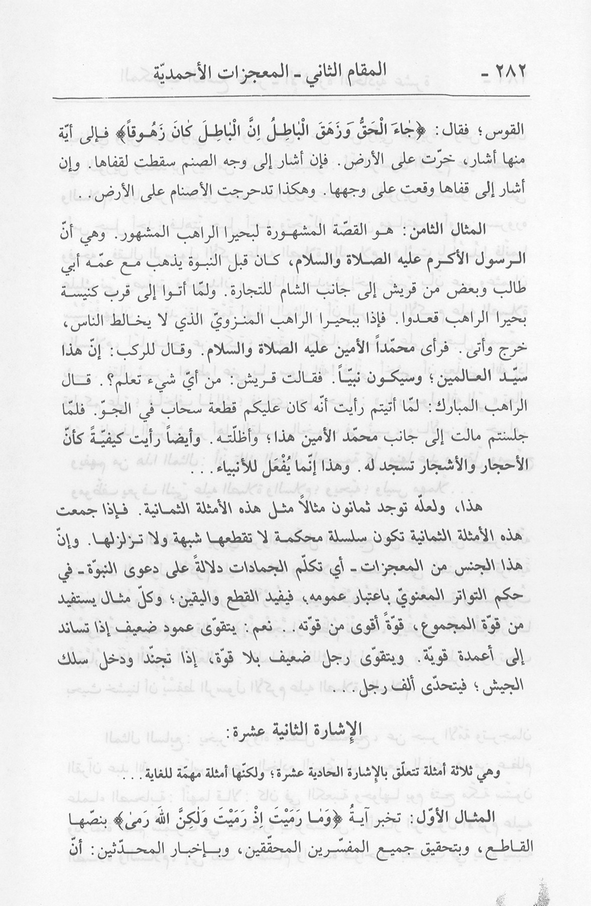 ٢٨٢ - المقام الثاني - المعجزات الأحمديّة
القوس؛ فقال: ﴿جَاءَ الْحَقُّ وَزَهَقَ الْبَاطِلُ إِنَّ الْبَاطِلَ كَانَ زَهُوقاً﴾ فإلى أيّة
منها أشار، خرّت على الأرض. فإن أشار إلى وجه الصنم سقطت لقفاها. وإن
أشار إلى قفاها وقعت على وجهها. وهكذا تدحرجت الأصنام على الأرض..
المثال الثامن: هو القصّة المشهورة لبحيرا الراهب المشهور. وهي أنّ
الرسول الأكرم عليه الصلاة والسلام، كان قبل النبوة يذهب مع عمّه أبي
طالب وبعض من قريش إلى جانب الشام للتجارة. ولمّا أتوا إلى قرب كنيسة
بحيرا الراهب قعدوا. فإذا ببحيرا الراهب المنزويّ الذي لا يخالط الناس،
خرج وأتى. فرأى محمّداً الأمين عليه الصلاة والسلام. وقال للركب: إنّ هذا
سيّد العالمين؛ وسيكون نبيّاً. فقالت قريش: من أيّ شيء تعلم؟. قال
الراهب المبارك: لمّا أتيتم رأيت أنّه كان عليكم قطعة سحاب في الجوّ. فلمّا
جلستم مالت إلى جانب محمّد الأمين هذا؛ وأظلّته. وأيضاً رأيت كيفيّةً كأنّ
الأحجار والأشجار تسجد له. وهذا إنّما يُفْعَل للأنبياء...
هذا، ولعلّه توجد ثمانون مثالاً مثل هذه الأمثلة الثمانية. فإذا جمعت
هذه الأمثلة الثمانية تكون سلسلة محكمة لا تقطعها شبهة ولا تزلزلها. وإنّ
هذا الجنس من المعجزات - أي تكلّم الجمادات دلالةً على دعوى النبوّة - في
حكم التواتر المعنويّ باعتبار عمومه، فيفيد القطع واليقين؛ وكلّ مثال يستفيد
من قوّة المجموع، قوّةً أقوى من قوّته.. نعم: يتقوّى عمود ضعيف إذا تساند
إلى أعمدة قويّة. ويتقوّى رجل ضعيف بلا قوّة، إذا تجنّد ودخل سلك
الجيش؛ فيتحدّى ألف رجل...
الإشارة الثانية عشرة:
وهي ثلاثة أمثلة تتعلّق بالإشارة الحادية عشرة؛ ولكنّها أمثلة مهمّة للغاية...
المثال الأوّل: تخبر آيةُ ﴿وَمَا رَمَيْتَ إِذْ رَمَيْتَ وَلَكِنَّ الله رَمىٰ﴾ بنصّها
القاطع، وبتحقيق جميع المفسّرين المحقّقين، وبإخبار المحدّثين: أنّ